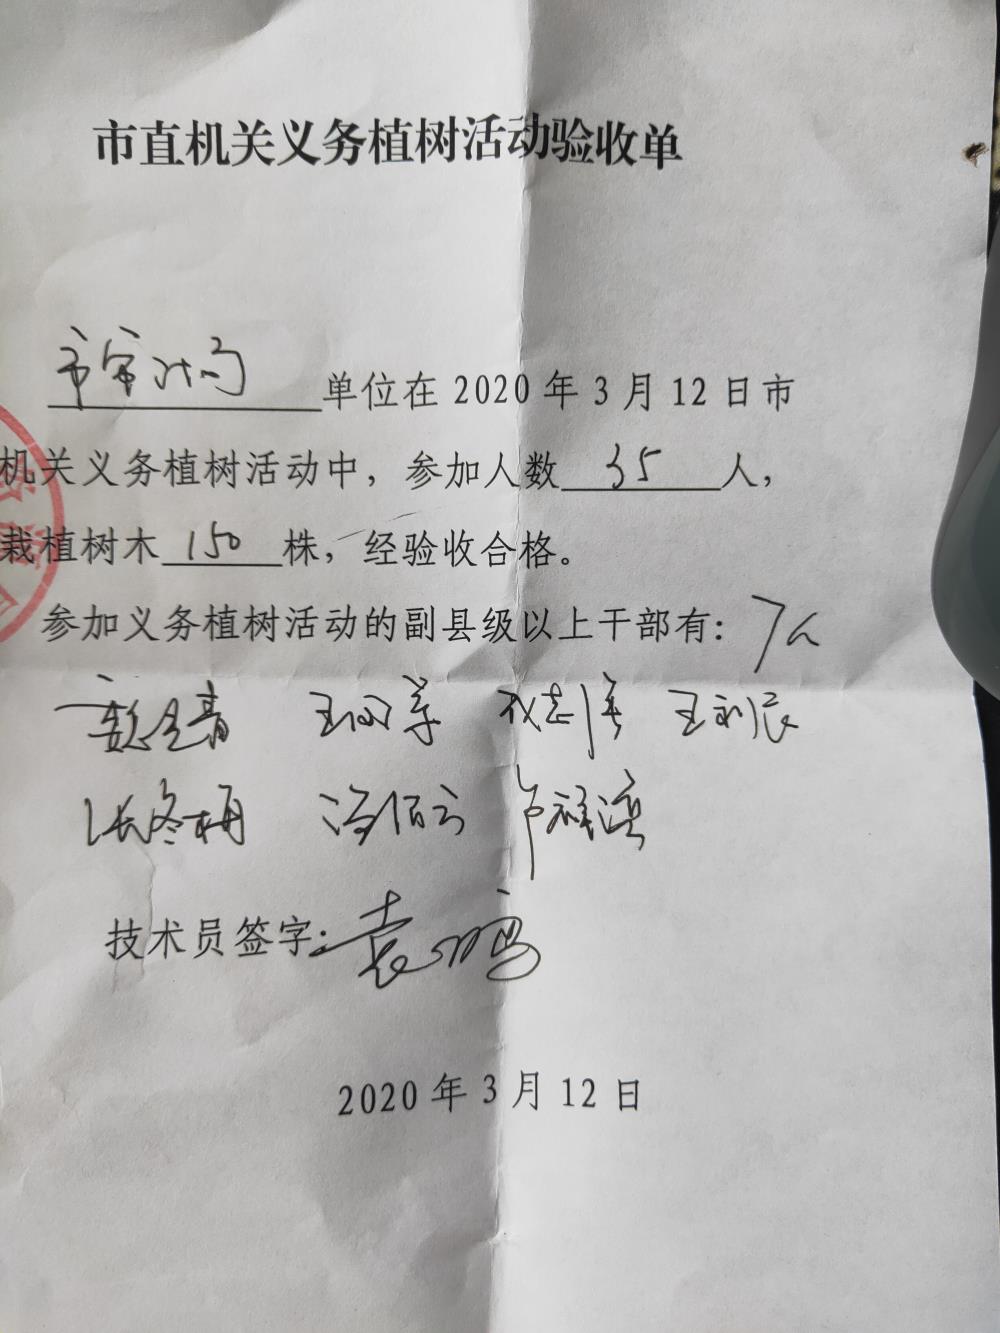 市直机关义务植树活动验收单
市审计局单位在 2020 年 3 月 12 日市
机关义务植树活动中，参加人数 35 人，
栽植树木 150 株，经验收合格。
参加义务植树活动的副县级以上干部有：7人
张冬梅 冯佰云
技术员签字：袁鸣
2020 年 3 月 12 日